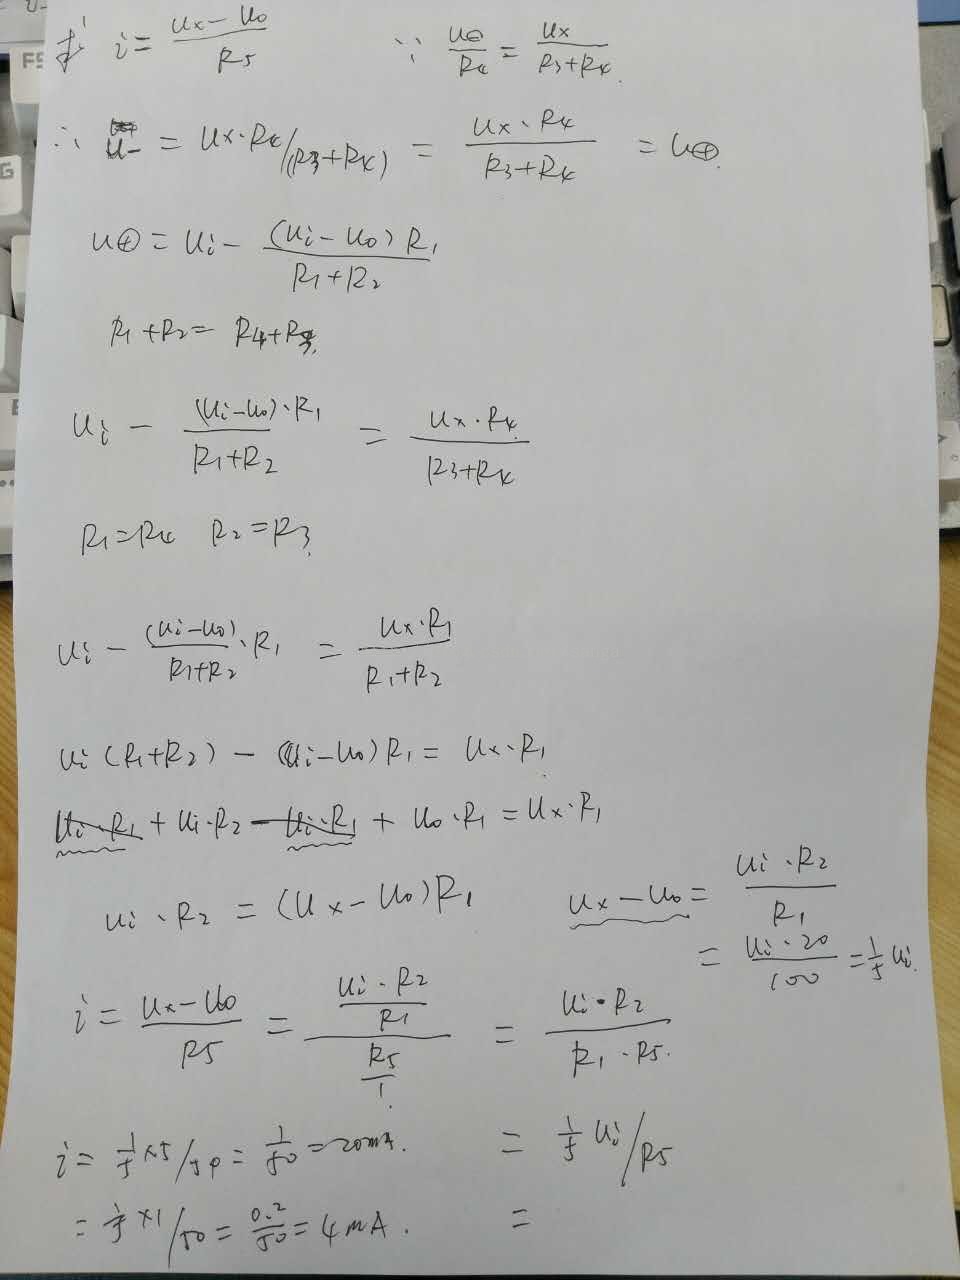 求 i = (Ux - Uo) / R5    ∵ U⊖/R4 = Ux/(R3+R4)
∴ U- = Ux·R4/(R3+R4) = (Ux·R4)/(R3+R4) = U⊕
U⊕ = Ui - (Ui-Uo)R1/(R1+R2)
R1+R2 = R4+R3
Ui - (Ui-Uo)·R1/(R1+R2) = Ux·R4/(R3+R4)
R1=R4 R2=R3
Ui - (Ui-Uo)/(R1+R2)·R1 = Ux·R1/(R1+R2)
Ui(R1+R2) - (Ui-Uo)R1 = Ux·R1
Ui·R1 + Ui·R2 - Ui·R1 + Uo·R1 = Ux·R1
Ui·R2 = (Ux-Uo)R1    Ux-Uo = Ui·R2/R1
= Ui·20/100 = 1/5 Ui.
i = (Ux-Uo)/R5 = (Ui·R2/R1)/(R5/1) = Ui·R2/(R1·R5).
i = 1/5 ×5/50 = 1/50 = 20mA.    = 1/5 Ui/R5
= 1/5 ×1/50 = 0.2/50 = 4mA.    =